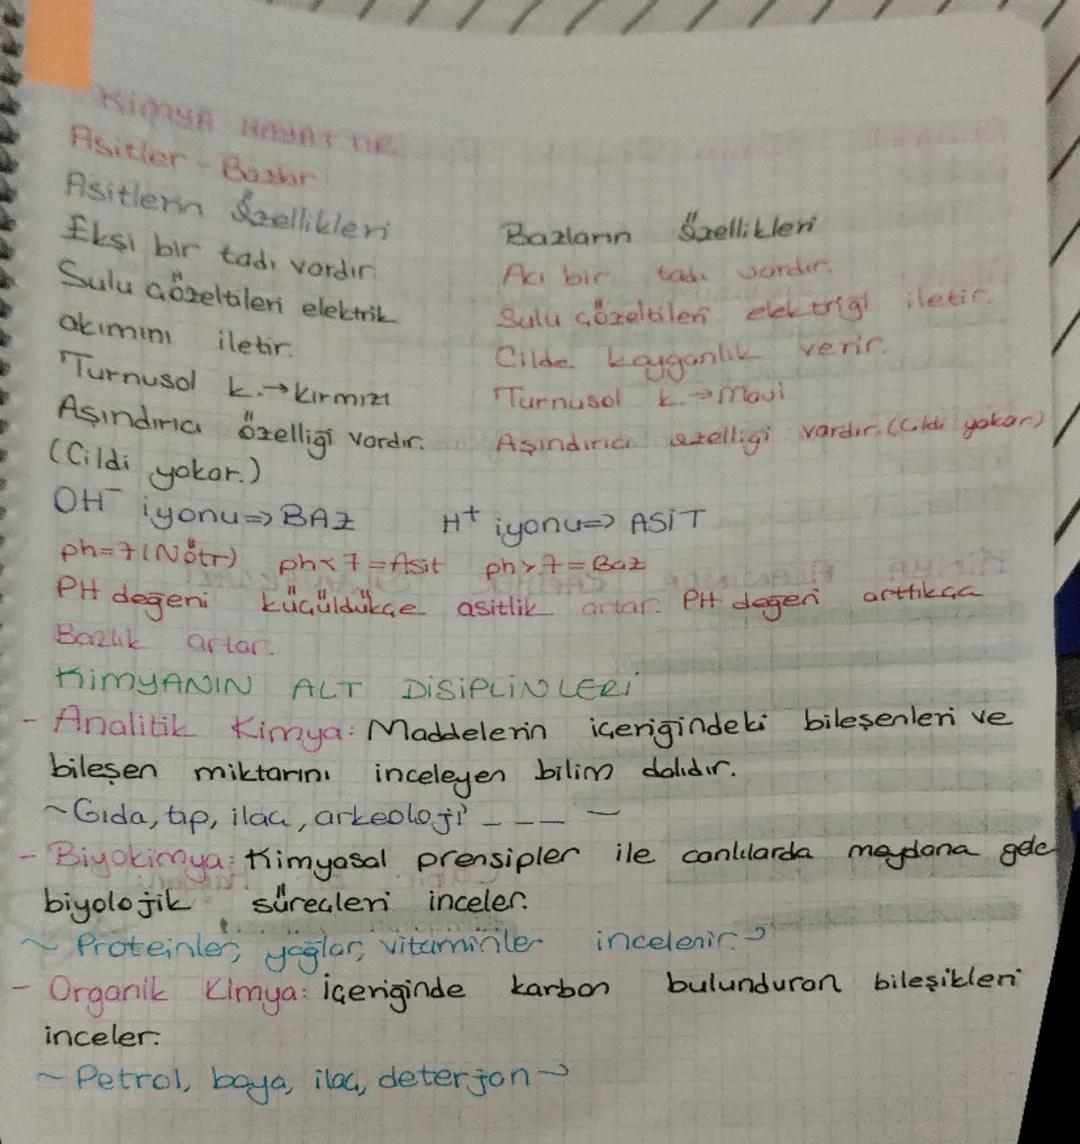 KİMYA HAYATTIR.
Asitler - Bazlar
Asitlerin Özellikleri
Ekşi bir tadı vardır.
Sulu çözeltileri elektrik
akımını iletir.
Turnusol k.→kırmızı
Aşındırıcı özelliği vardır.
(Cildi yakar.)
Bazların Özellikleri
Acı bir tadı vardır.
Sulu çözeltileri elektriği iletir.
Cilde kayganlık verir.
Turnusol k.→Mavi
Aşındırıcı özelliği vardır.(Cildi yakar)
OH⁻ iyonu=>BAZ H⁺ iyonu=> ASİT
ph=7(Nötr) ph<7=Asit ph>7=Baz
PH değeri küçüldükçe asitlik artar. PH değeri arttıkça
Bazlık artar.
KİMYANIN ALT DİSİPLİNLERİ
- Analitik Kimya: Maddelerin içeriğindeki bileşenleri ve
bileşen miktarını inceleyen bilim dalıdır.
~Gıda, tıp, ilaç, arkeoloji _ _ _ _
- Biyokimya: Kimyasal prensipler ile canlılarda meydana gele
biyolojik süreçleri inceler.
~ Proteinler, yağlar, vitaminler incelenir.→
- Organik Kimya: İçeriğinde karbon bulunduran bileşikleri
inceler.
~ Petrol, boya, ilaç, deterjan→